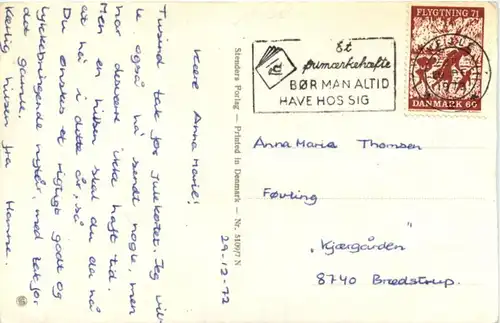 29-12-72
Kære Anna Marie!
Tusind tak for julekortet. Jeg vil-
le også ha' sendt nogle, men
har desværre ikke haft tid.
Men en hilsen skal du da nå
at få i dette år, så
Du ønskes et rigtigt godt og
lykkebringende nytår, med tak for
det gamle.
Kærlig hilsen fra Hanne.
Stenders Forlag — Printed in Denmark — Nr. 51097 N
Et
frimærkehæfte
BØR MAN ALTID
HAVE HOS SIG
FLYGTNING 71
DANMARK 60
Anna Marie Thomsen
Føvling
"Kjærgården"
8740 Brædstrup.